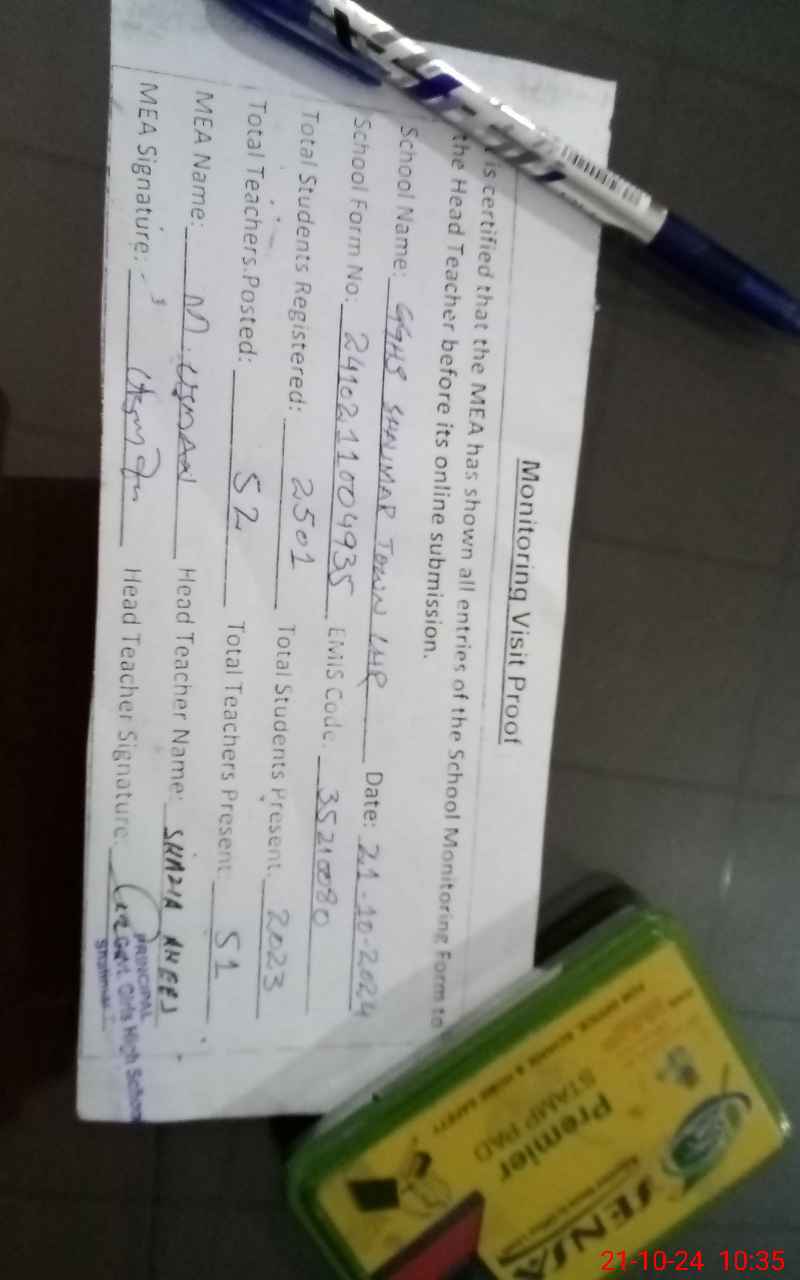 Monitoring Visit Proof
t is certified that the MEA has shown all entries of the School Monitoring Form to
the Head Teacher before its online submission.
School Name: GGHS SHALIMAR TOWN LHR Date: 21-10-2024
School Form No: 24102110004935 EMIS Code: 35210080
Total Students Registered: 2501 Total Students Present: 2023
Total Teachers Posted: 52 Total Teachers Present: 51
MEA Name: M. USMAN Head Teacher Name: SHAZIA ANEES
MEA Signature: Head Teacher Signature:
PRINCIPAL
Govt. Girls High School
Premier
STAMP PAD
21-10-24 10:35